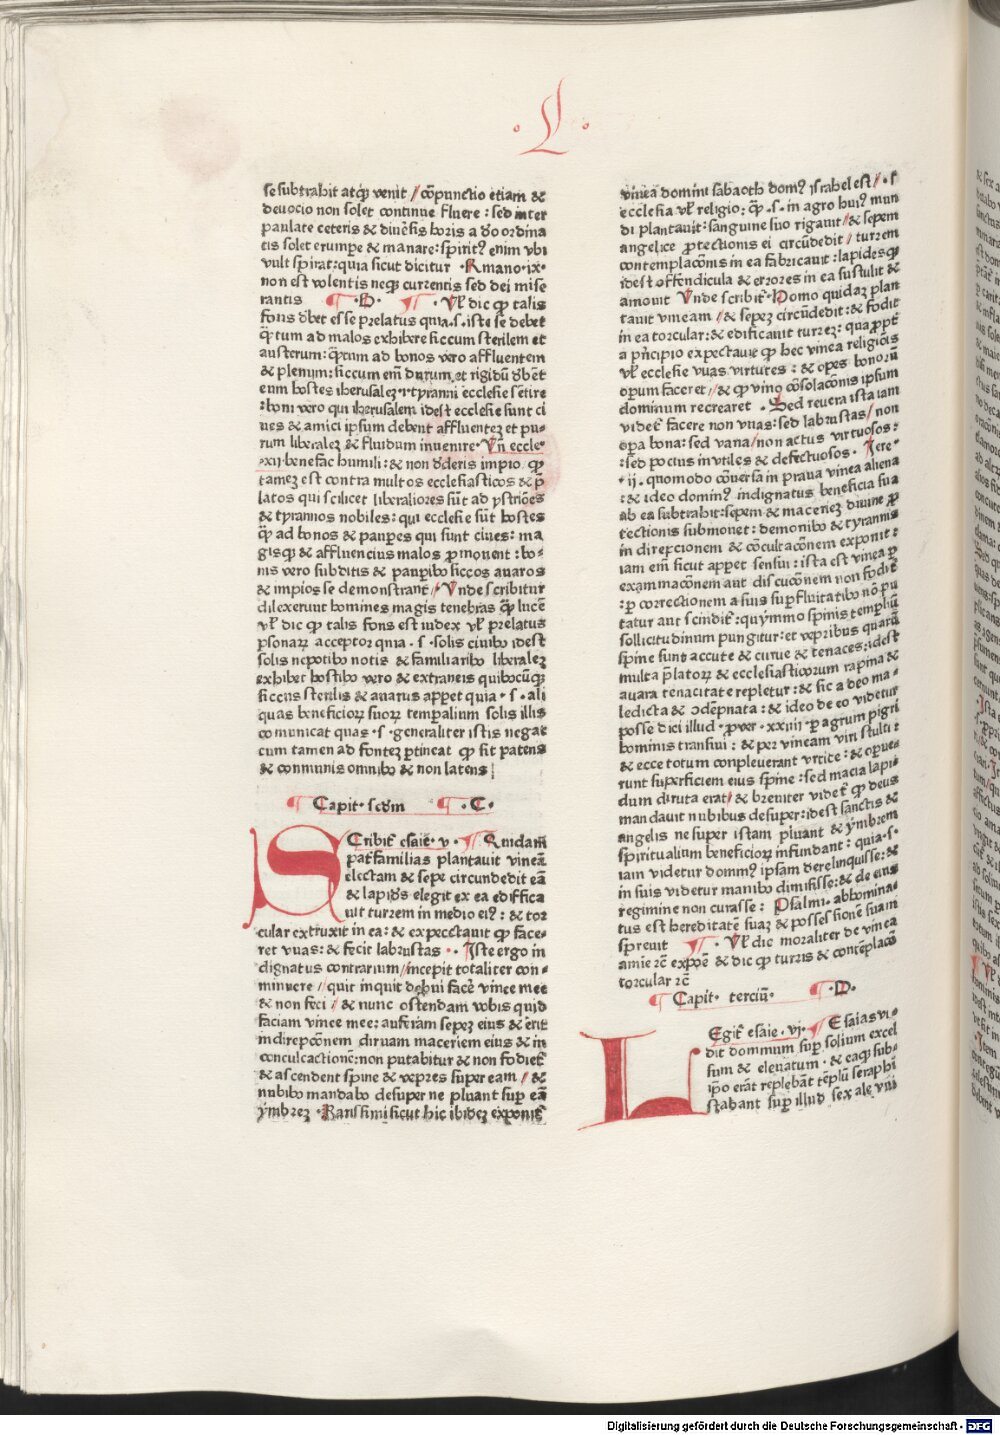 · L ·
se subtrahit atqꝫ venit / cōpunctio etiam &
deuocio non solet continue fluere : sed inter
paulate ceteris & diuersis horis a deo ordina
tis solet erumpe & manare: spiritꝰ enim vbi
vult spirat: quia sicut dicitur · Rmano · ix ·
non est volentis neqꝫ currentis sed dei mise
rantis ¶ · B · ¶ · Vl' dic qp talis
fons dbet esse prelatus quia · s · iste se debet
q̄tum ad malos exhibere siccum sterilem et
austerum: q̄tum ad bonos vero affluentem
& plenum: siccum em̄ durum et rigidū dbēt
enim hostes iherusalez · i · tyranni ecclesie sētire
: boni vero qui iherusalem idest ecclesie sunt ci
ues & amici ipsum debent affluentez et pu-
rum liberalez & fluidum inuenire · Vn̄ eccle·
·xij· benefac humili : & non dderis impio qp
tamez est contra multos ecclesiasticos & p̄
latos qui scilicet liberaliores sūt ad ystriōes
& tyrannos nobiles: qui ecclesie sūt hostes
q̄ ad bonos & paupes qui sunt ciues: ma
gisqꝫ & affluencius malos pmouent : bo-
nis vero subditis & paupibꝰ siccos auaros
& impios se demonstrant / Vnde scribitur
dilexerunt homines magis tenebras q̄ lucē
vl' dic qp talis fons est iudex vl' prelatus
psonarꝫ acceptor quia · s · solis ciuibꝰ idest
solis nepotibꝰ notis & familiaribꝰ liberalez
exhibet hostibꝰ vero & extraneis quibocūqꝫ
siccus sterilis & auarus appet quia · s · ali
quas beneficiorꝫ suorꝫ tempalium solis illis
comunicat quas · s · generaliter istis negat
cum tamen ad fontez ptineat qp sit patens
& communis omnibꝰ & non latens
¶ Capit · scdm ¶ · C ·
SCribit' esaie · v · ¶ Quidam
pat'familias plantauit vineā
electam & sepe circundedit eā
& lapides elegit ex ea ediffica
uit turrem in medio eiꝰ : & tor
cular extruxit in ea : & expecctauit qp face-
ret vuas: & fecit labrustas · · Iste ergo in
dignatus contrarium / incepit totaliter con-
minuere / quit inquit debui facē vinee mee
& non feci / & nunc ostendam vobis quid
faciam vinee mee: auferam sepez eius & erit
in direpcōnem diruam maceriem eius & in
conculcactionē: non putabitur & non fodiet'
& ascendent spine & vepres super eam / &
nubibo mandabo desuper ne pluant sup eā
ymbrez · Rarissimi sicut hic ibidez exponit'
vinea domini sabaoth domꝰ israhel est / · s
ecclesia vl' religio: q̄ · s · in agro huiꝰ mun
di plantauit: sanguine suo rigauit / & sepem
angelice ptectionis ei circūdedit / turrem
contemplacōnis in ea fabricauit : lapidesqꝫ
idest offendicula & errores in ea sustulit &
amouit Vnde scribit' · Homo quidaz plan
tauit vineam / & sepez circūdedit : & fodit
in ea torcular: & edificauit turrez: qua ppt̄
a pn̄cipio expectauit qp hec vinea religiōis
vl' ecclesie vuas virtutes : & opes bonorū
operum faceret / & qp vino cōsolacōnis ipsum
dominum recrearet · Sed reuera ista iam
videt' facere non vuas: sed labrustas / non
opa bona: sed vana / non actus virtuosos:
: sed pocius inutiles & defectuosos · Iere·
· ij · quomodo cōuersa in praua vinea aliena
: & ideo dominꝰ indignatus beneficia sua
ab ea subtrahit: sepem & maceriez diuine p
tectionis submonet : demonibo & tyrannis
in direpcionem & cōculcacōnem exponit :
iam em̄ sicut appet sensui : ista est vinea p
exammacōnem aut discucōnem non fodit'
: p correctionem a suis supfluitatibo nō pu
tatur aut scindit' : quymmo spinis templū
sollicitudinum pungitur : et vepribus quarū
spine sunt accute & curue & tenaces: idest
multa platorꝫ & ecclesiasticorum rapina &
auara tenacitate repletur : & sic a deo ma-
ledicta & ɔdempnata : & ideo de eo videtur
posse dici illud · puer · xxiiij · p agrum pigri
hominis transiui : & per vineam viri stulti :
& ecce totum conpleuerant vrtice : & opue-
runt superficiem eius spine : sed macia lapi-
dum diruta erat / & breuiter videt' qp deus
mandauit nubibus desuper: idest sanctis &
angelis ne super istam pluant & ymbrem
spiritualium beneficiorꝫ infundant : quia · s ·
iam videtur dommꝰ ipsam derelinquisse: &
in suis videtur manibo dimisisse: & de eius
regimine non curasse : Psalmi · abbomina-
tus est hereditatē suaz & possessionē suam
spreuit ¶ · Vl' dic moraliter de vinea
amīe ɾc̄ expōe & dic qp turris & contēplacō
torcular ɾc̄
¶ Capit · terciū · ¶ · D ·
LEgit' esaie · vj · ¶ Esaias vi-
dit dommum sup solium excel
sum & eleuatum · & eaqꝫ sub-
ipo erāt replebāt tēplū seraphi
stabant sup illud sex ale vni
Digitalisierung gefördert durch die Deutsche Forschungsgemeinschaft - DFG